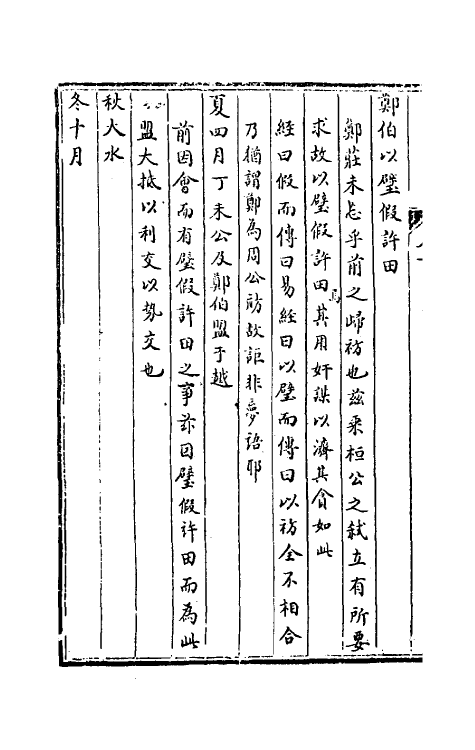 鄭伯以璧假許田
鄭莊未忘乎前之歸祊也茲乘桓公之弑立有所要
求故以璧假許田焉其用奸謀以濟其貪如此
經曰假而傳曰易經曰以璧而傳曰以祊全不相合
乃猶謂鄭為周公祊故詎非夢語耶
夏四月丁未公及鄭伯盟于越
前因會而有璧假許田之事茲因璧假許田而為此
盟大抵以利交以勢交也
秋大水
冬十月